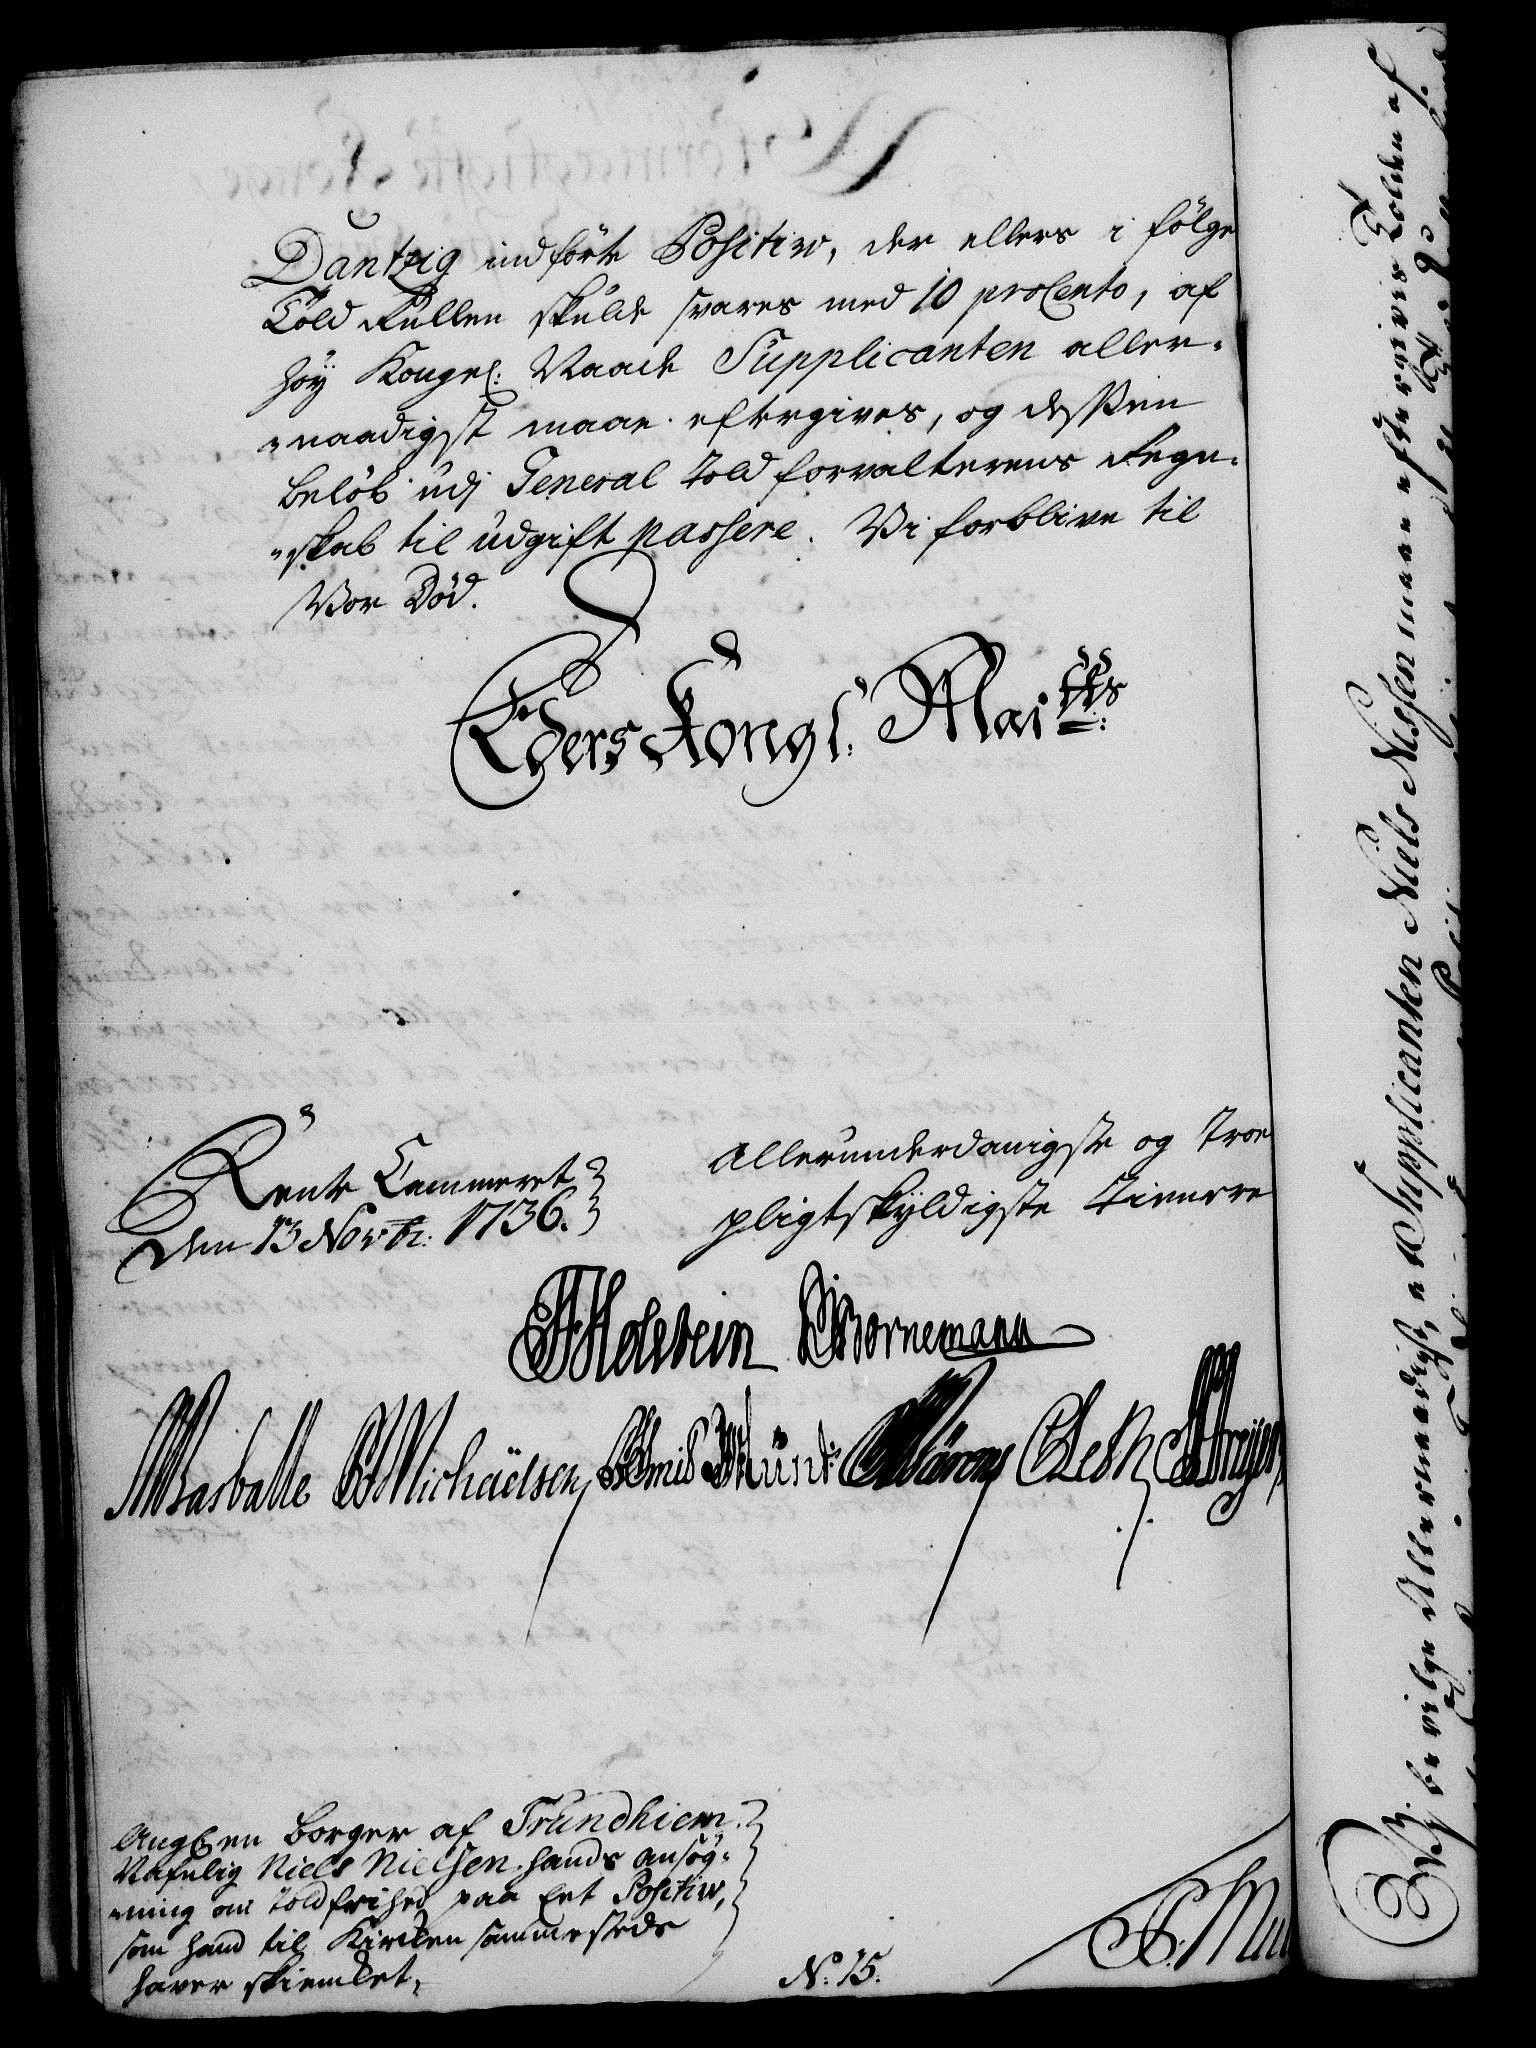 Dantzig indförte Positiv, der ellers i fölge
Told Rullen skulde svares med 10 proCento, af
höy Kongel: Naade Supplicanten aller-
naadigst maae eftergives, og dessen
belöb udj General Toldforvalterens Regn-
skab til udgift passere. Vi forblive til
Vor Död.
Eders Kongl: Mai:tts
Rente Cammeret
den 13 Novbr: 1736.
Allerunderdanigste og Troe
pligtskyldigste Tienere
Holstein Bornemann
Basballe Michäelsen Smid Münt Lesh
Ang: en borger af Trundhiem
Nafnlig Niels Nielsen hands ansög-
ning om Toldfrihed paa Eet Positiv,
som hand til Kirken sammesteds
haver skienket,
No: 15.
Vj bevilge Allernaadigst, at Supplicanten Niels Nielsen maae eftergives Tolden af